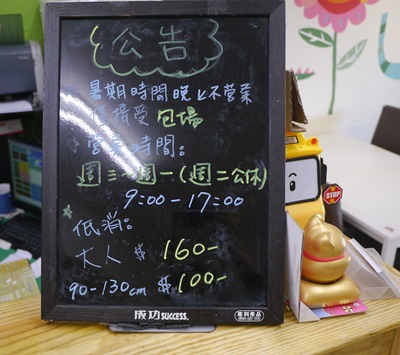 公告
暑期時間晚上不營業
僅接受包場
營業時間：
週三~週一(週二公休)
9:00-17:00
低消：
大人 $ 160-
90-130cm $100-
成功 SUCCESS.
專利產品